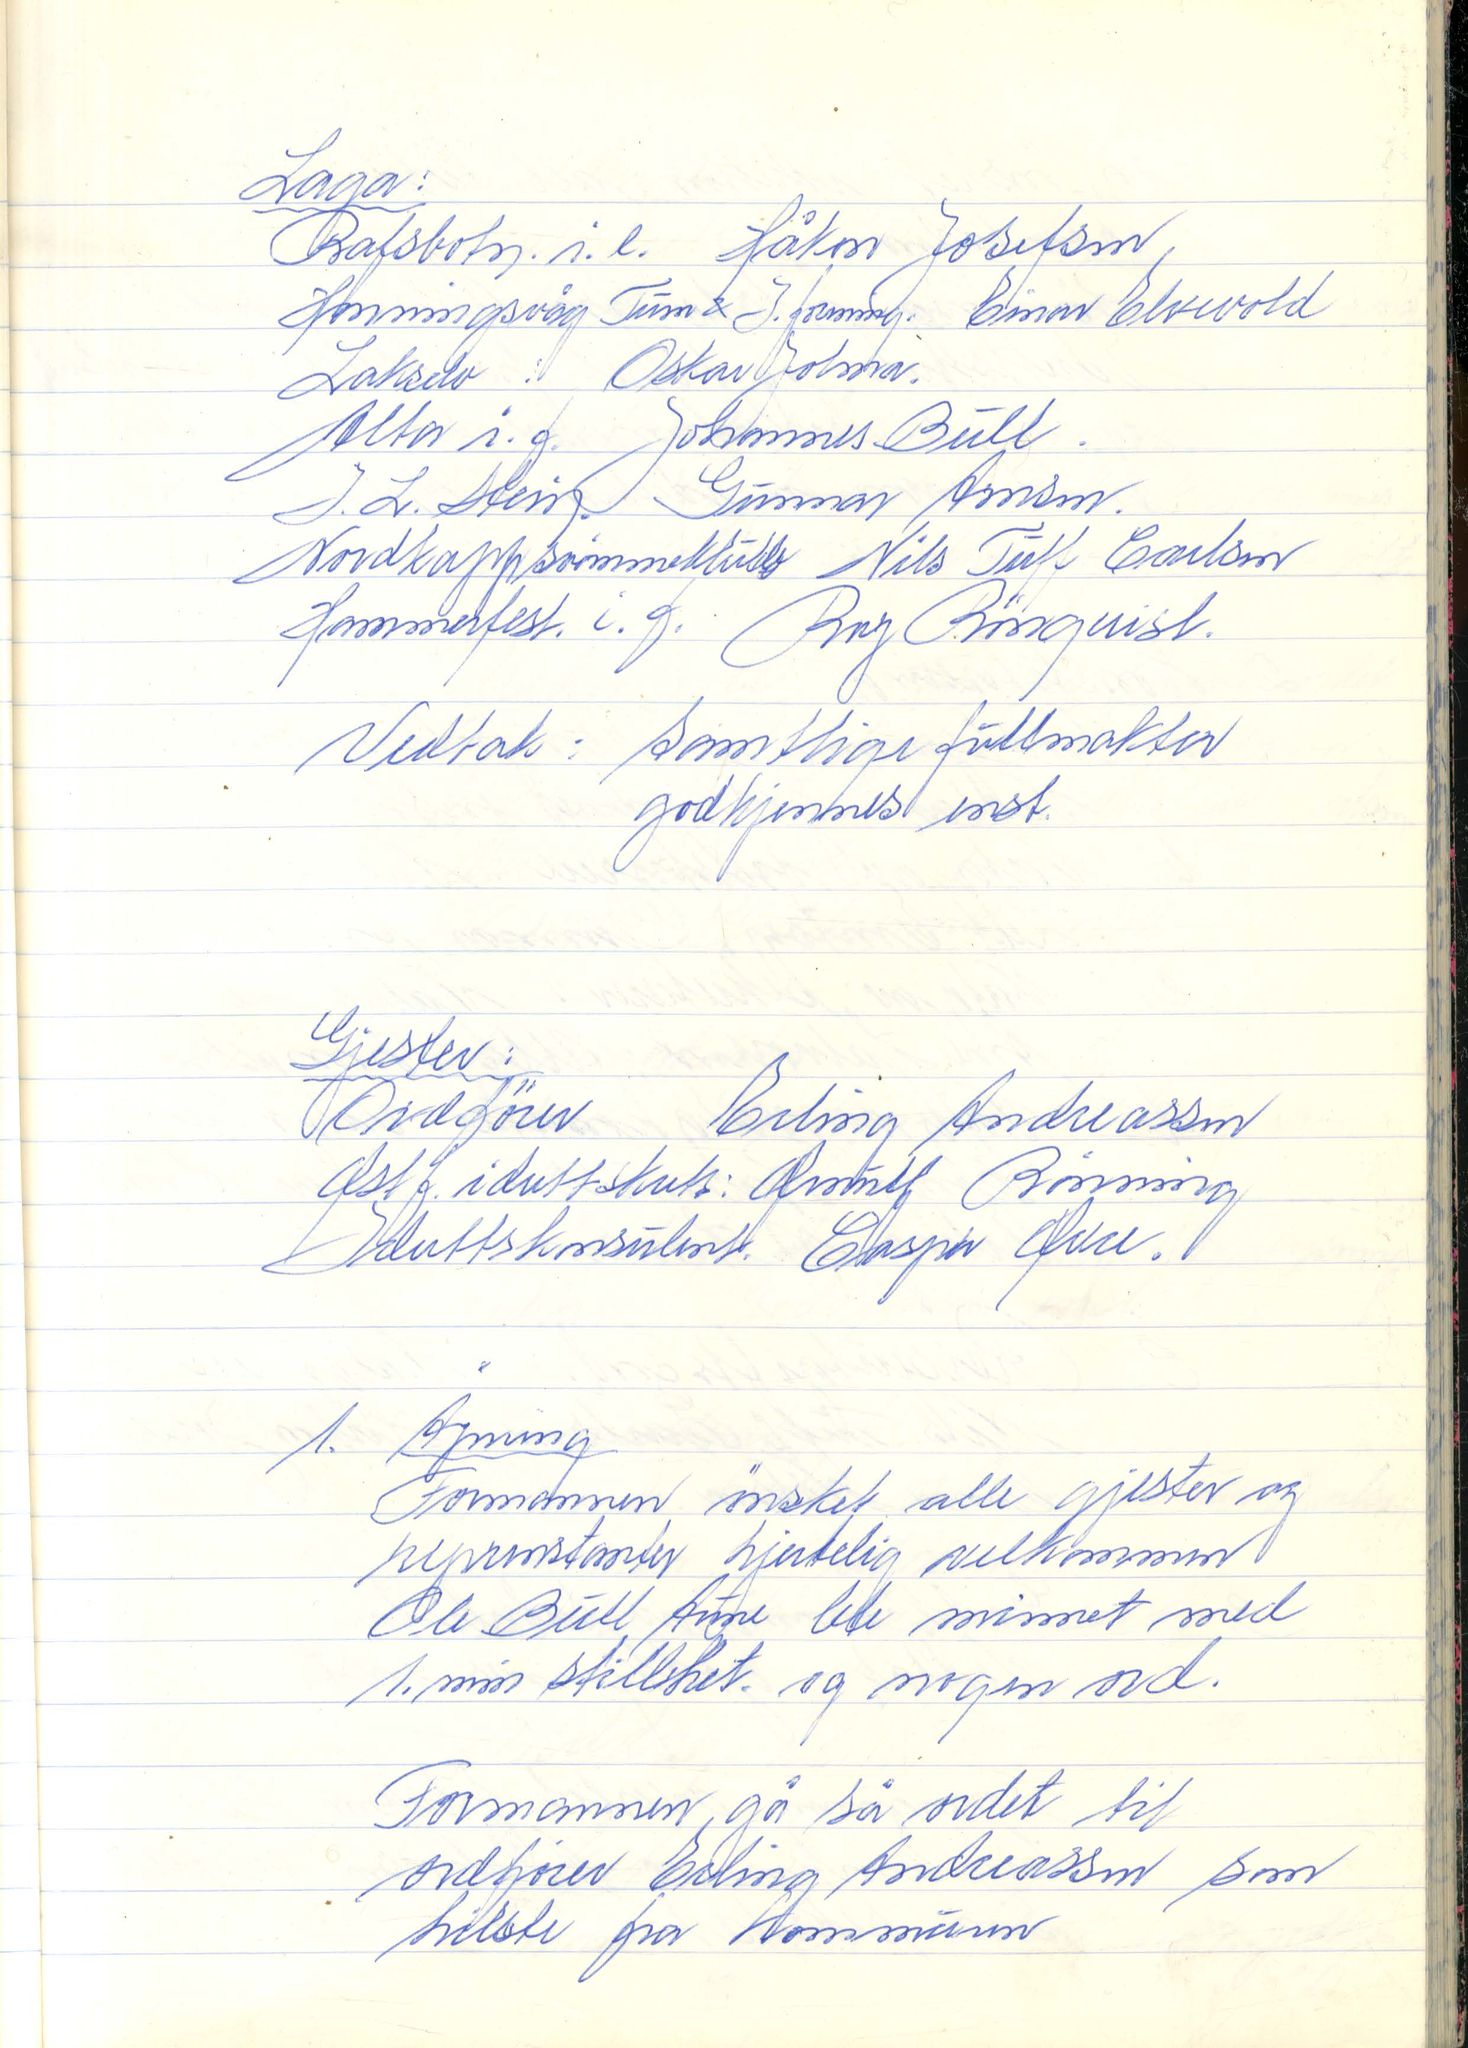 Laga:
Rafsbotn. i. l. Håkon Josefsen,
Honningsvåg Turn & I. forening. Einar Elvevold
Lakselv : Oskar Johnsa.
Alta i. f. Johannes Bull.
I. L. Stein. Gunnar Arnsen.
Nordkapp svömmeklubb Nils Tuff Carlsen
Hammerfest. i. f. Roy Rönquist.
Vedtak : Samtlige fullmakter
godkjennes enst.
Gjester:
Ordförer Erling Andreassen
Östf. idrettskrets: Arnulf Rönning
Idrettskonsulent. Caspar
1. Åpning
Formannen önsket alle gjester og
representanter hjertelig velkommen
Ole Bull Aune ble minnet med
1. min stillhet. og nogen ord.
Formannen, gå så ordet til
ordförer Erling Andreassen som
hilste fra kommunen